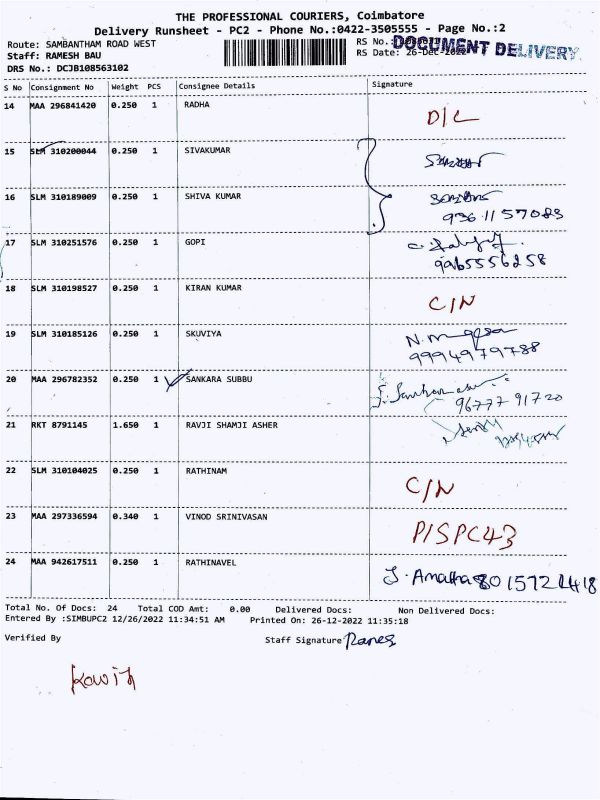 THE PROFESSIONAL COURIERS, Coimbatore
Delivery Runsheet - PC2 - Phone No.:0422-3505555 - Page No.:2
Route: SAMBANTHAM ROAD WEST
Staff: RAMESH BAU
DRS No.: DCJB108563102
RS No.:
RS Date: 26-Dec-2022
DOCUMENT DELIVERY
S No Consignment No Weight PCS Consignee Details Signature
14 MAA 296841420 0.250 1 RADHA D/C
15 SLM 310200044 0.250 1 SIVAKUMAR
16 SLM 310189009 0.250 1 SHIVA KUMAR
9361157083
17 SLM 310251576 0.250 1 GOPI
9965556258
18 SLM 310198527 0.250 1 KIRAN KUMAR C/N
19 SLM 310185126 0.250 1 SKUVIYA
9994979788
20 MAA 296782352 0.250 1 SANKARA SUBBU
96777 91720
21 RKT 8791145 1.650 1 RAVJI SHAMJI ASHER
22 SLM 310104025 0.250 1 RATHINAM C/N
23 MAA 297336594 0.340 1 VINOD SRINIVASAN P/SPC43
24 MAA 942617511 0.250 1 RATHINAVEL
Total No. Of Docs: 24 Total COD Amt: 0.00 Delivered Docs: Non Delivered Docs:
Entered By :SIMBUPC2 12/26/2022 11:34:51 AM Printed On: 26-12-2022 11:35:18
Verified By Staff Signature